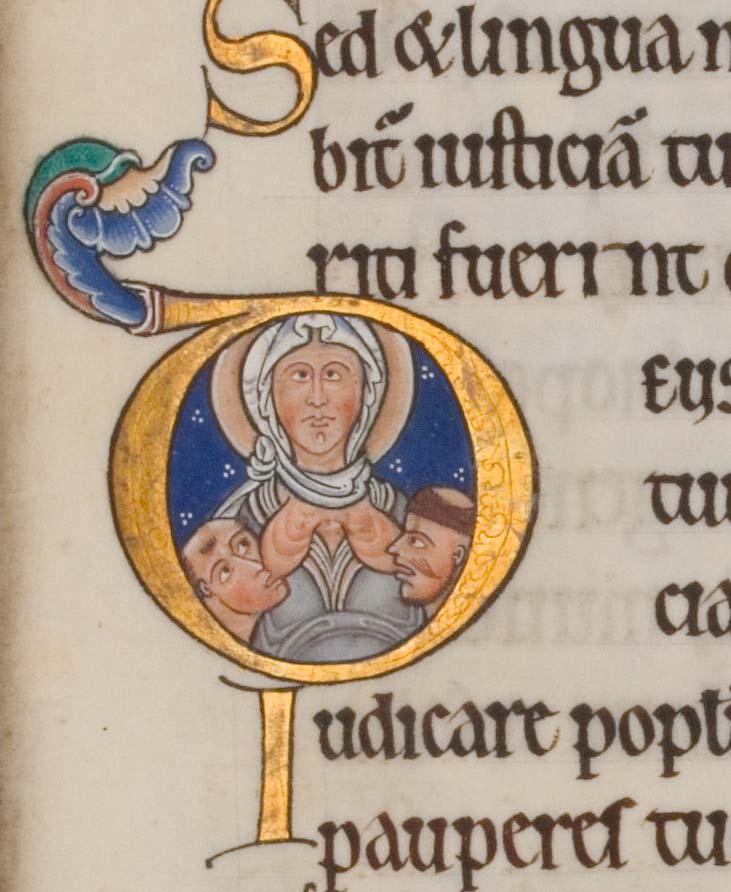 Sed & lingua
bit̃ iusticiã tu
riti fueri nt
DEUS
tuu
cia
Iudicare popl̃
pauperes tu